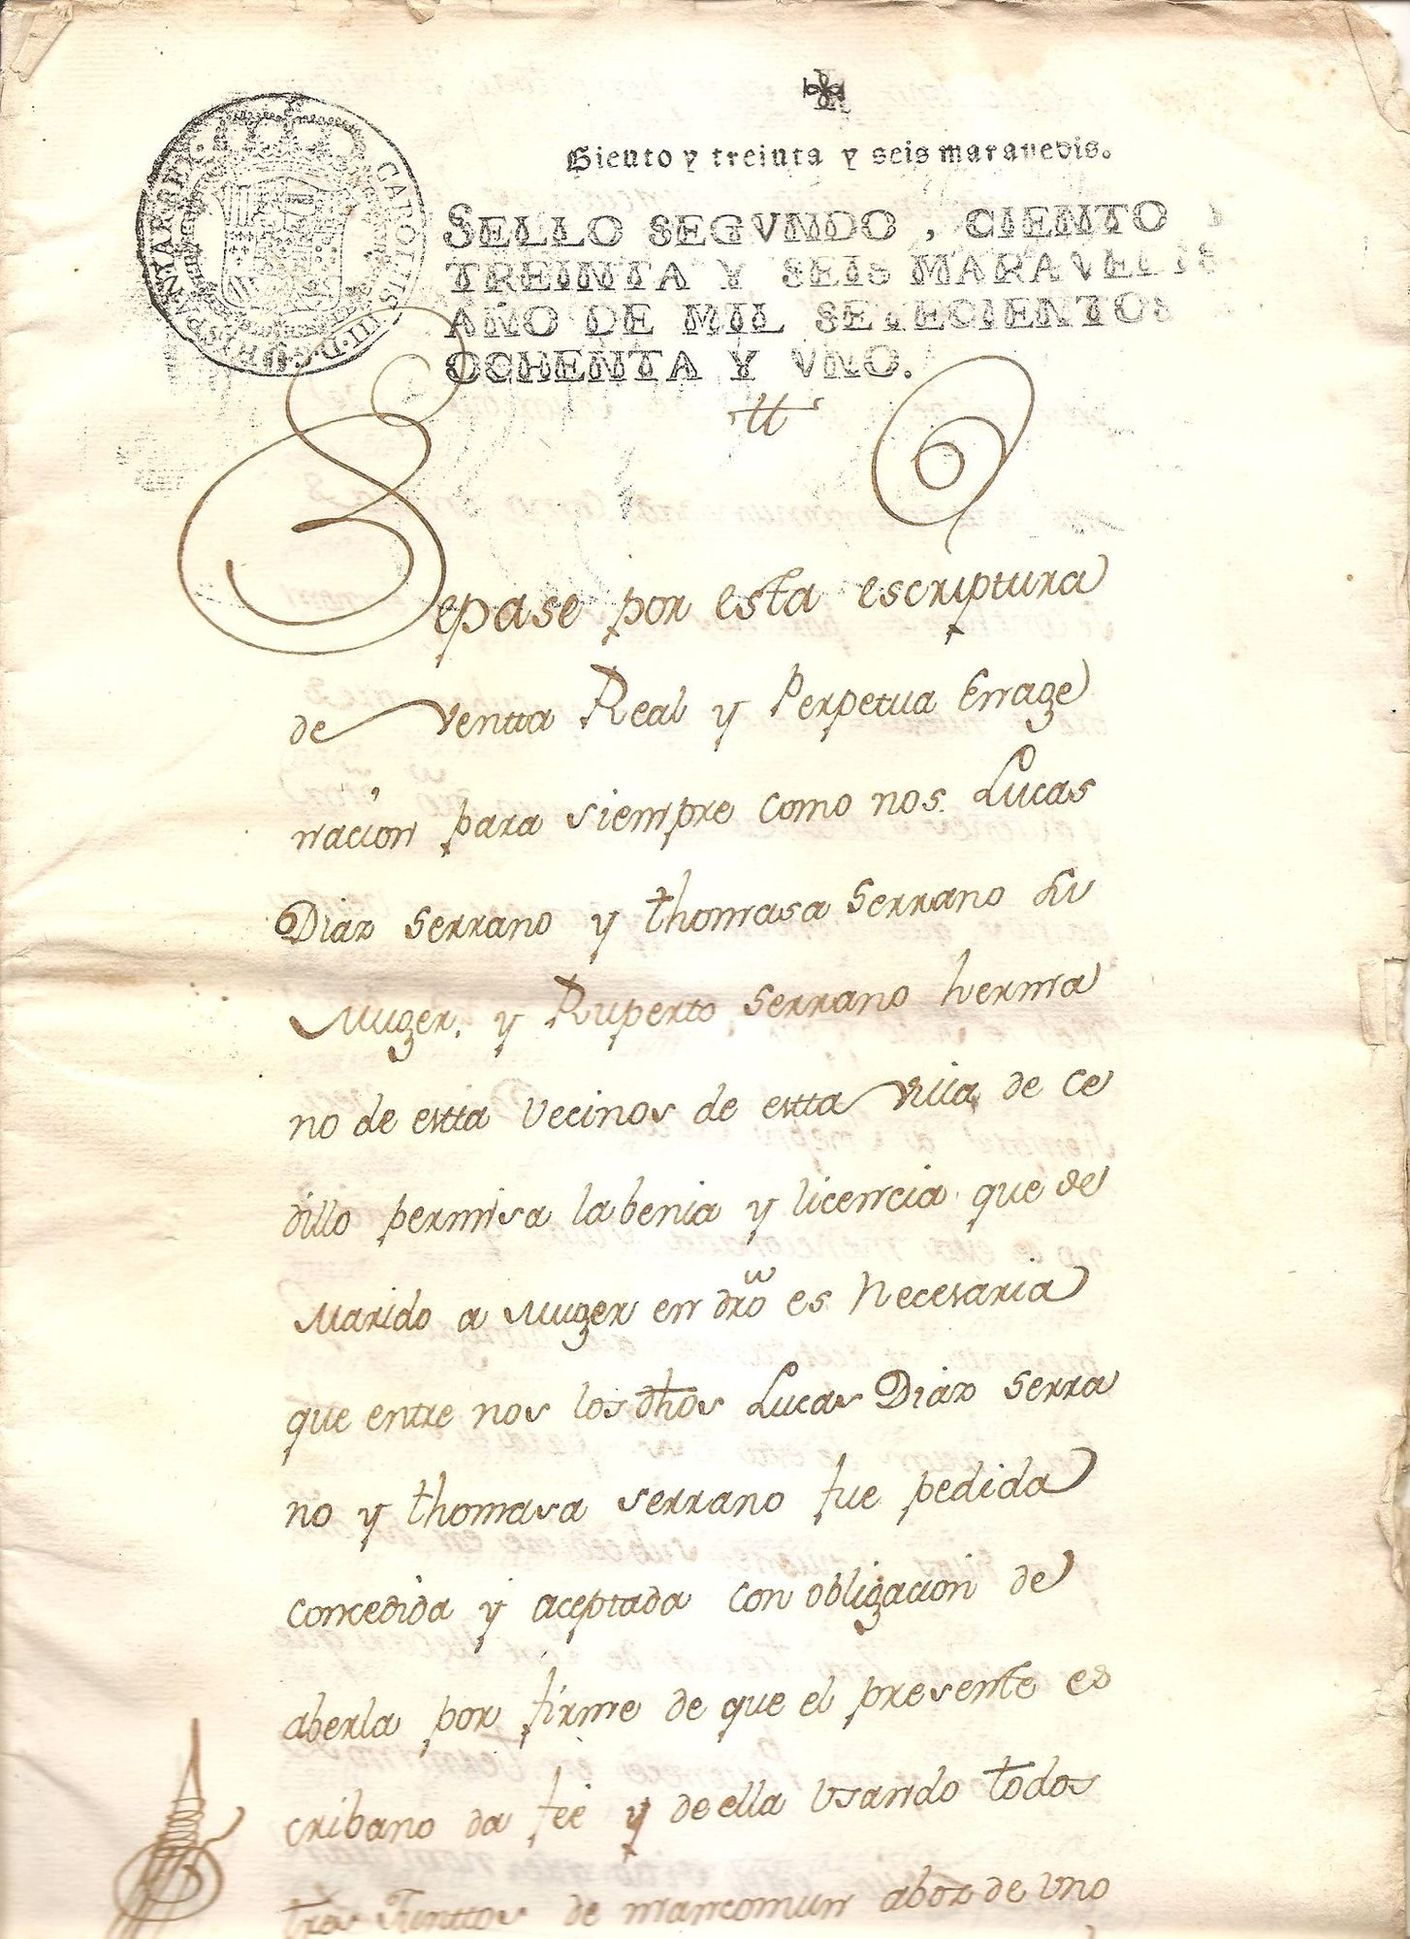 Ciento y treinta y seis maravedis.
CAROLUS III D G HISPANIAR REX
SELLO SEGVNDO, CIENTO Y
TREINTA Y SEIS MARAVEDIS
AÑO DE MIL SETECIENTOS
OCHENTA Y VNO.
Sepase por esta escriptura
de ventta Real y Perpetua Enage
nacion para siempre como nos Lucas
Diaz Serrano y thomasa Serrano Su
Muger, y Ruperto Serrano herma
no de estta Vecinos de estta Villa de Ce
dillo permisa la benia y licencia que de
Marido a Muger en dro es Necesaria
que entre nos los dhos Lucas Diaz Serra
no y thomasa Serrano fue pedida
concedida y aceptada con obligacion de
aberla por firme de que el presente es
cribano da feé y de ella Vsando todos
tres Junttos de mancomun aboz de Vno